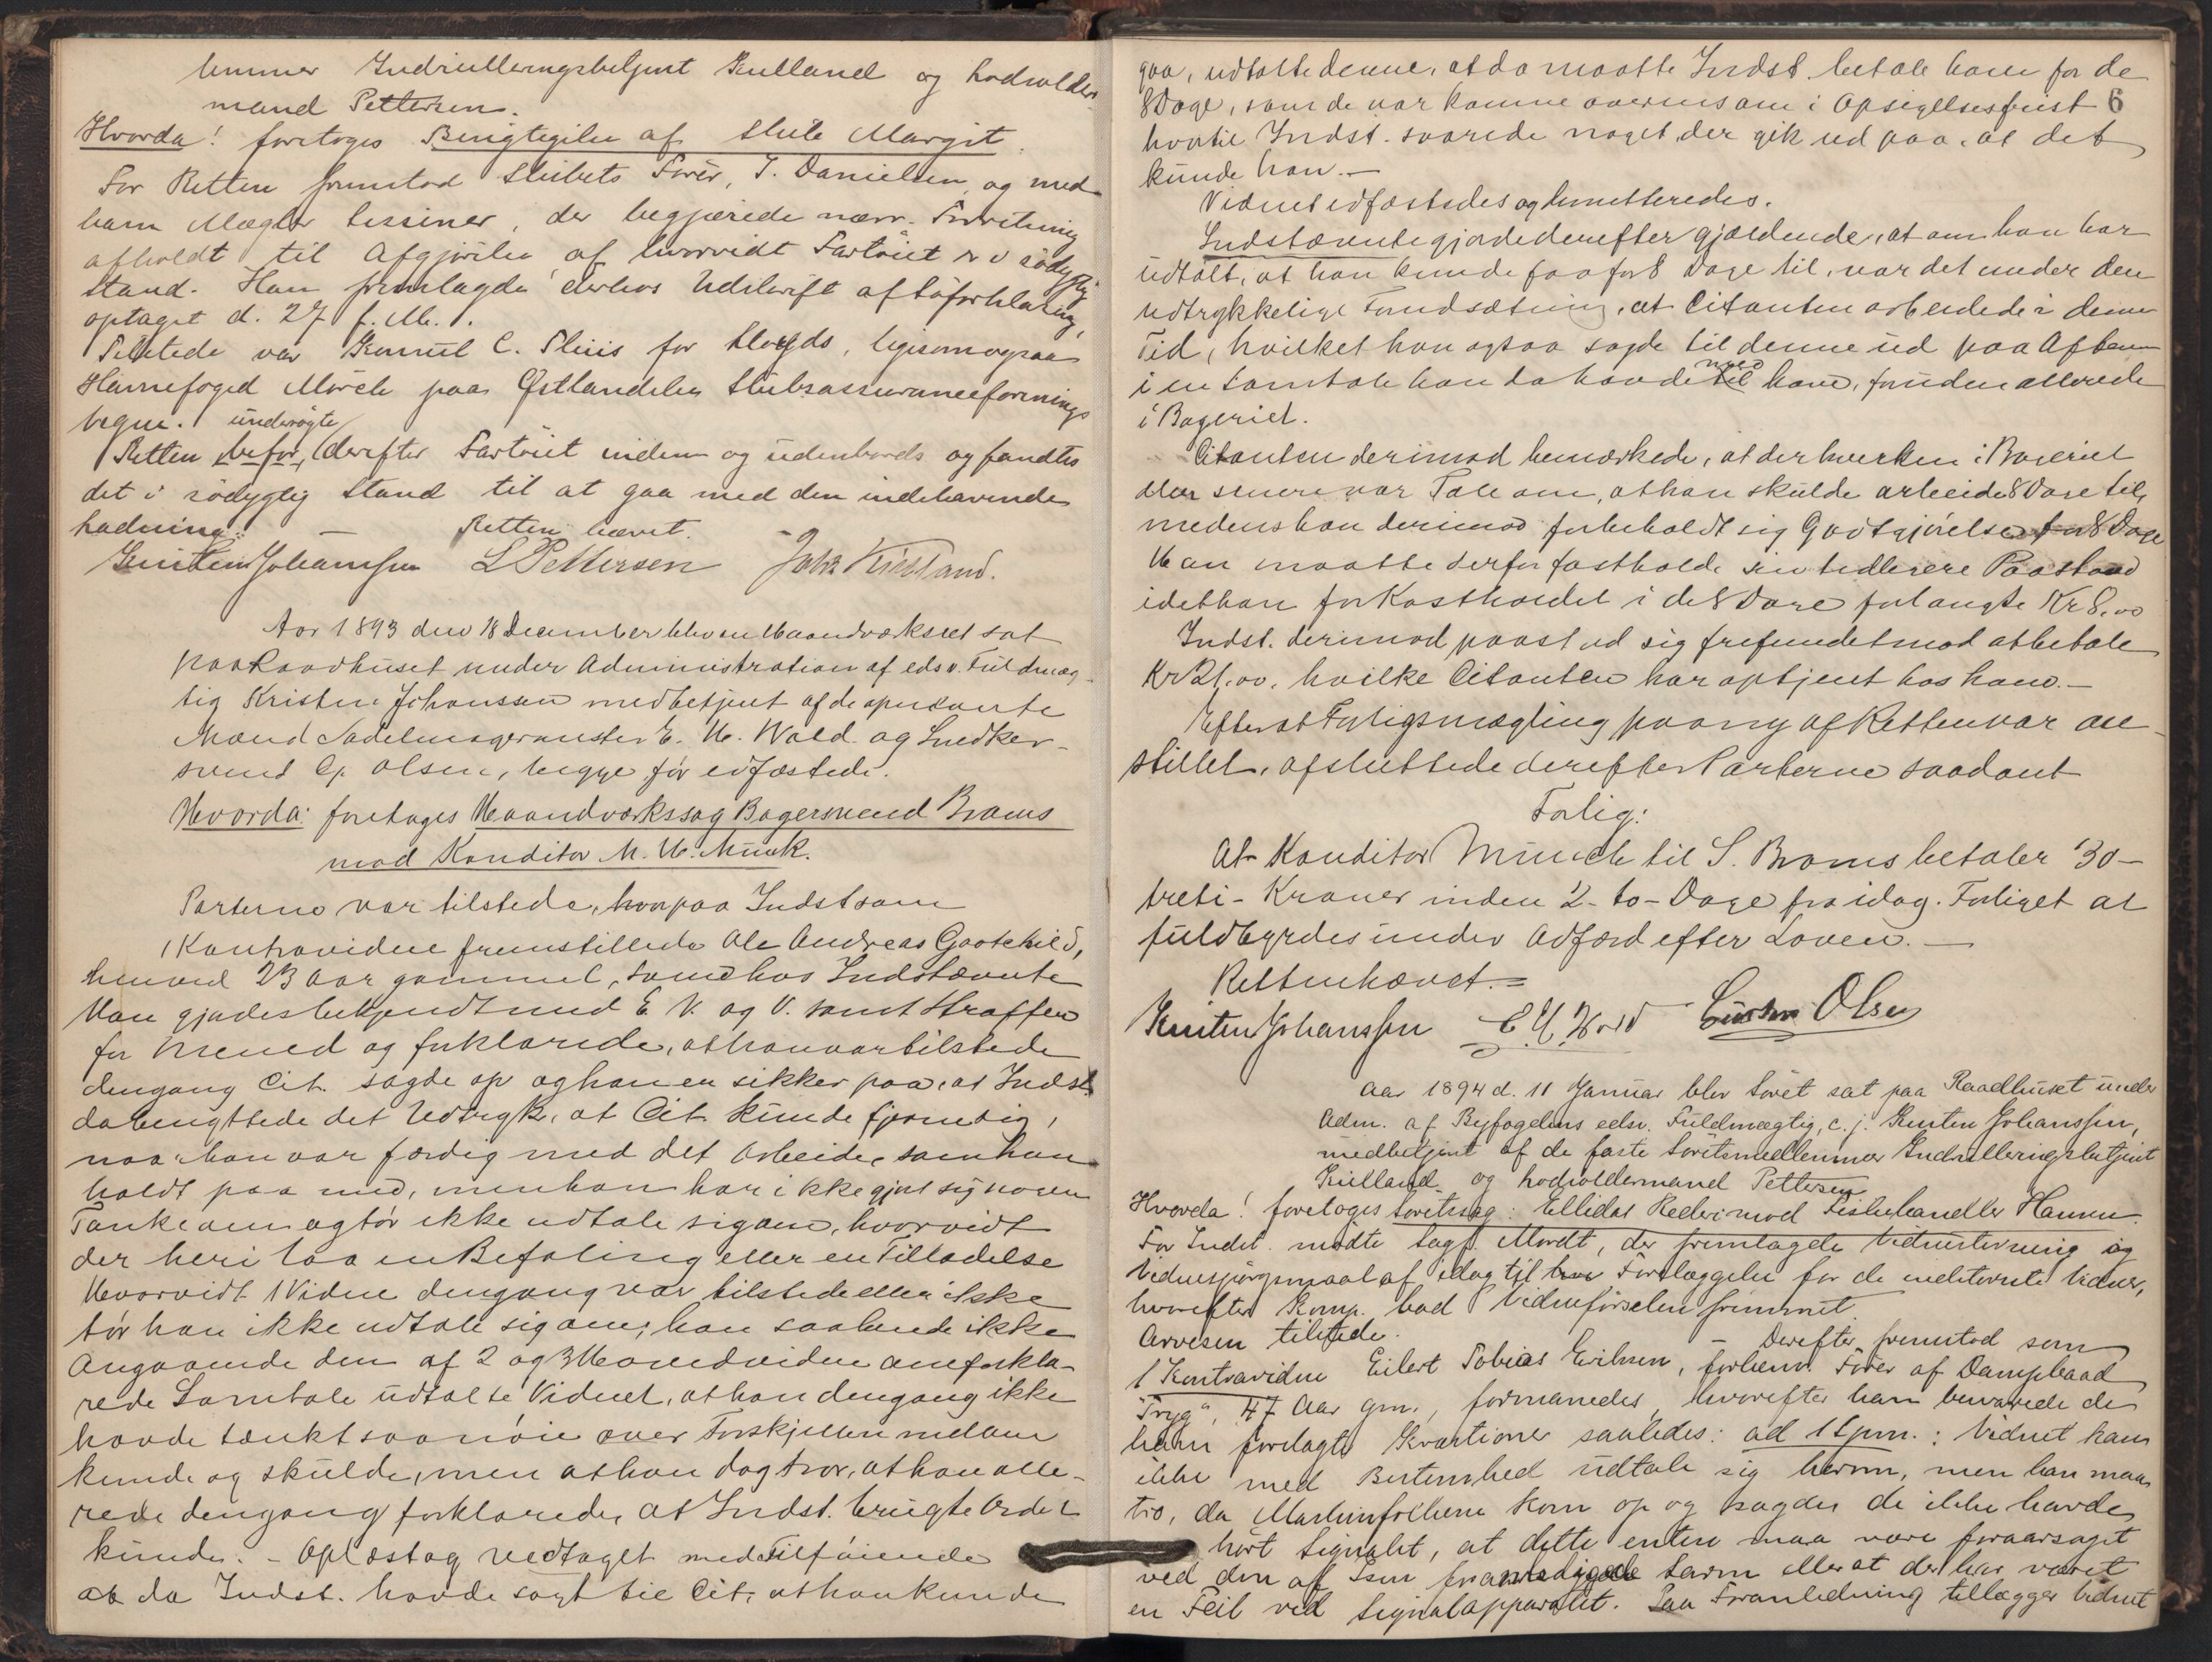 lemmer Indrulleringsbetjent Kielland og hodsolder-
mand Pettersen.
Hvorda! foretoges Besigtigelse af Skib Margit.
For Retten fremstod Skibets Fører, T. Danielsen, og med
ham Mægler Gessiner, der begjærede nærv. Forretning
afholdt til Afgjørelse af hvorvidt Fartøiet er i sødygtig
Stand. Han fremlagde derhos Udskrift af Søforklaring,
optaget d. 27 f. M.
Tilstede var Konsul C. Sluis for Lloyds, ligesom ogsaa
Havnefoged Mørch paa Østlandske Skibsassuranceforenings
vegne.
Retten befor, undersøgte derefter Fartøiet inden og udenbords og fandtes
det i sødygtig Stand til at gaa med den indehavende
Ladning. — Retten hævet.
Kristen Johanssen L Pettersen Joh. Kielland.
Aar 1893 den 18 December blev en Haandværksret sat
paa Raadhuset under Administration af edsv. Fuldmæg-
tig Kristen Johanssen medbetjent af de opnævnte
Mænd Sadelmagermester E. H. Wold og Snedker-
svend G. Olsen, begge før edfæstede.
Hvorda: foretages Haandværkssag Bagersvend Brams
mod Konditor M. H. Münch.
Parterne var tilstede, hvorpaa Indst som
1 Kontravidne fremstillede Ole Andreas Gaotehild,
henved 23 Aar gammel, Svend hos Indstævnte
Han gjordes bekjendt med E. V. og V. samt Straffen
for Mened og forklarede, at han var tilstede
dengang Cit. sagde op og han er sikker paa, at Indst.
da benyttede det Udtryk, at Cit. kunde fjerne sig,
naar han var færdig med det Arbeide, som han
holdt paa med, men han har ikke gjort sig nogen
Tanke om og tør ikke udtale sig om, hvorvidt
der heri laa en Befaling eller en Tilladelse
Hvorvidt 1 Vidne dengang var tilstede eller ikke
tør han ikke udtale sig om; han saa hende ikke
Angaaende den af 2 og 3 Hovedvidne omforkla-
rede Samtale udtalte Vidnet, at han dengang ikke
havde tænkt saa nøie over Forskjellen mellem
kunde og skulde, men at han dog tror, at han alle-
rede dengang forklarede, at Indst. brugte Ordet
kunde. - Oplæst og vedtaget med Tilføiende
at da Indst. havde sagt til Cit. at han kunde
gaa, udtalte denne, at da maatte Indst. betale ham for de
8 Dage, som de var komne overens om i Opsigelsesfrist 6
hvortil Indst. svarede noget der gik ud paa, at det
kunde han. —
Vidnet edfæstedes og demitteredes.
Indstævnte gjorde derefter gjældende, at om han har
udtalt, at han kunde faa for 8 Dage til, var det under den
udtrykkelige Forudsætning, at Citanten arbeidede i denne
Tid, hvilket han ogsaa sagde til denne ud paa Aftenen
i en Samtale han da havde til med ham, foruden allerede
i Bageriet.
Citanten derimod bemærkede, at der hverken i Bageriet
eller senere var Tale om, at han skulde arbeide 8 Dage til,
medens han derimod forbeholdt sig Godtgjørelse for 8 Dage
Han maatte derfor fastholde sin tidligere Paastand
idet han for Kostholdet i de 8 Dage forlangte Kr 8.00
Indst. derimod paastod sig frifundet mod at betale
Kr 21.00, hvilke Citanten har optjent hos ham. —
Efterat Forligsmægling paany af Retten var an-
stillet, afsluttede derefter Parterne saadant
Forlig:
At Konditor Münch til S. Brams betaler 30 -
treti - Kroner inden 2 - to - Dage fra idag. Forliget at
fuldbyrdes under Adfærd efter Loven. —
Retten hævet. =
Kristen Johanssen E. H. Wold Gustav Olsen
Aar 1894 d. 11 Januar blev Søret sat paa Raadhuset under
Adm. af Byfogdens edsv. Fuldmægtig, c. j. Kristen Johanssen,
medbetjent af de faste Søretsmedlemmer Indrulleringsbetjent
Kielland og hodsoldermand Pettersen
Hvorda! foretoges Søretssag: Ellidas Rederi mod Fiskehandler Hansen.
For Indst. mødte Sagf. Mordt, der fremlagde Vidnestevning og
Vidnespørgsmaal af idag til Forelæggelse for de indstevnte Vidner,
hvorefter Komp. bad Vidneførselen fremmet.
Arvesen tilstede. — Derefter fremstod som
1 Kontravidne Eilert Tobias Eriksen, forhenv. Fører af Dampbaad
"Tryg", 47 Aar gm., formanedes, hvorefter han besvarede de
ham forelagte Kvæstioner saaledes: ad 1 Spm.: Vidnet kan
ikke med Bestemthed udtale sig herom, men han maa
tro, da Maskinfolkene kom op og sagde, de ikke havde
hørt Signalet, at dette enten maa være foraarsaget
ved den af Isen foranledigede Larm eller at der har været
en Feil ved Signalapparatet. Paa Foranledning tillægger Vidnet